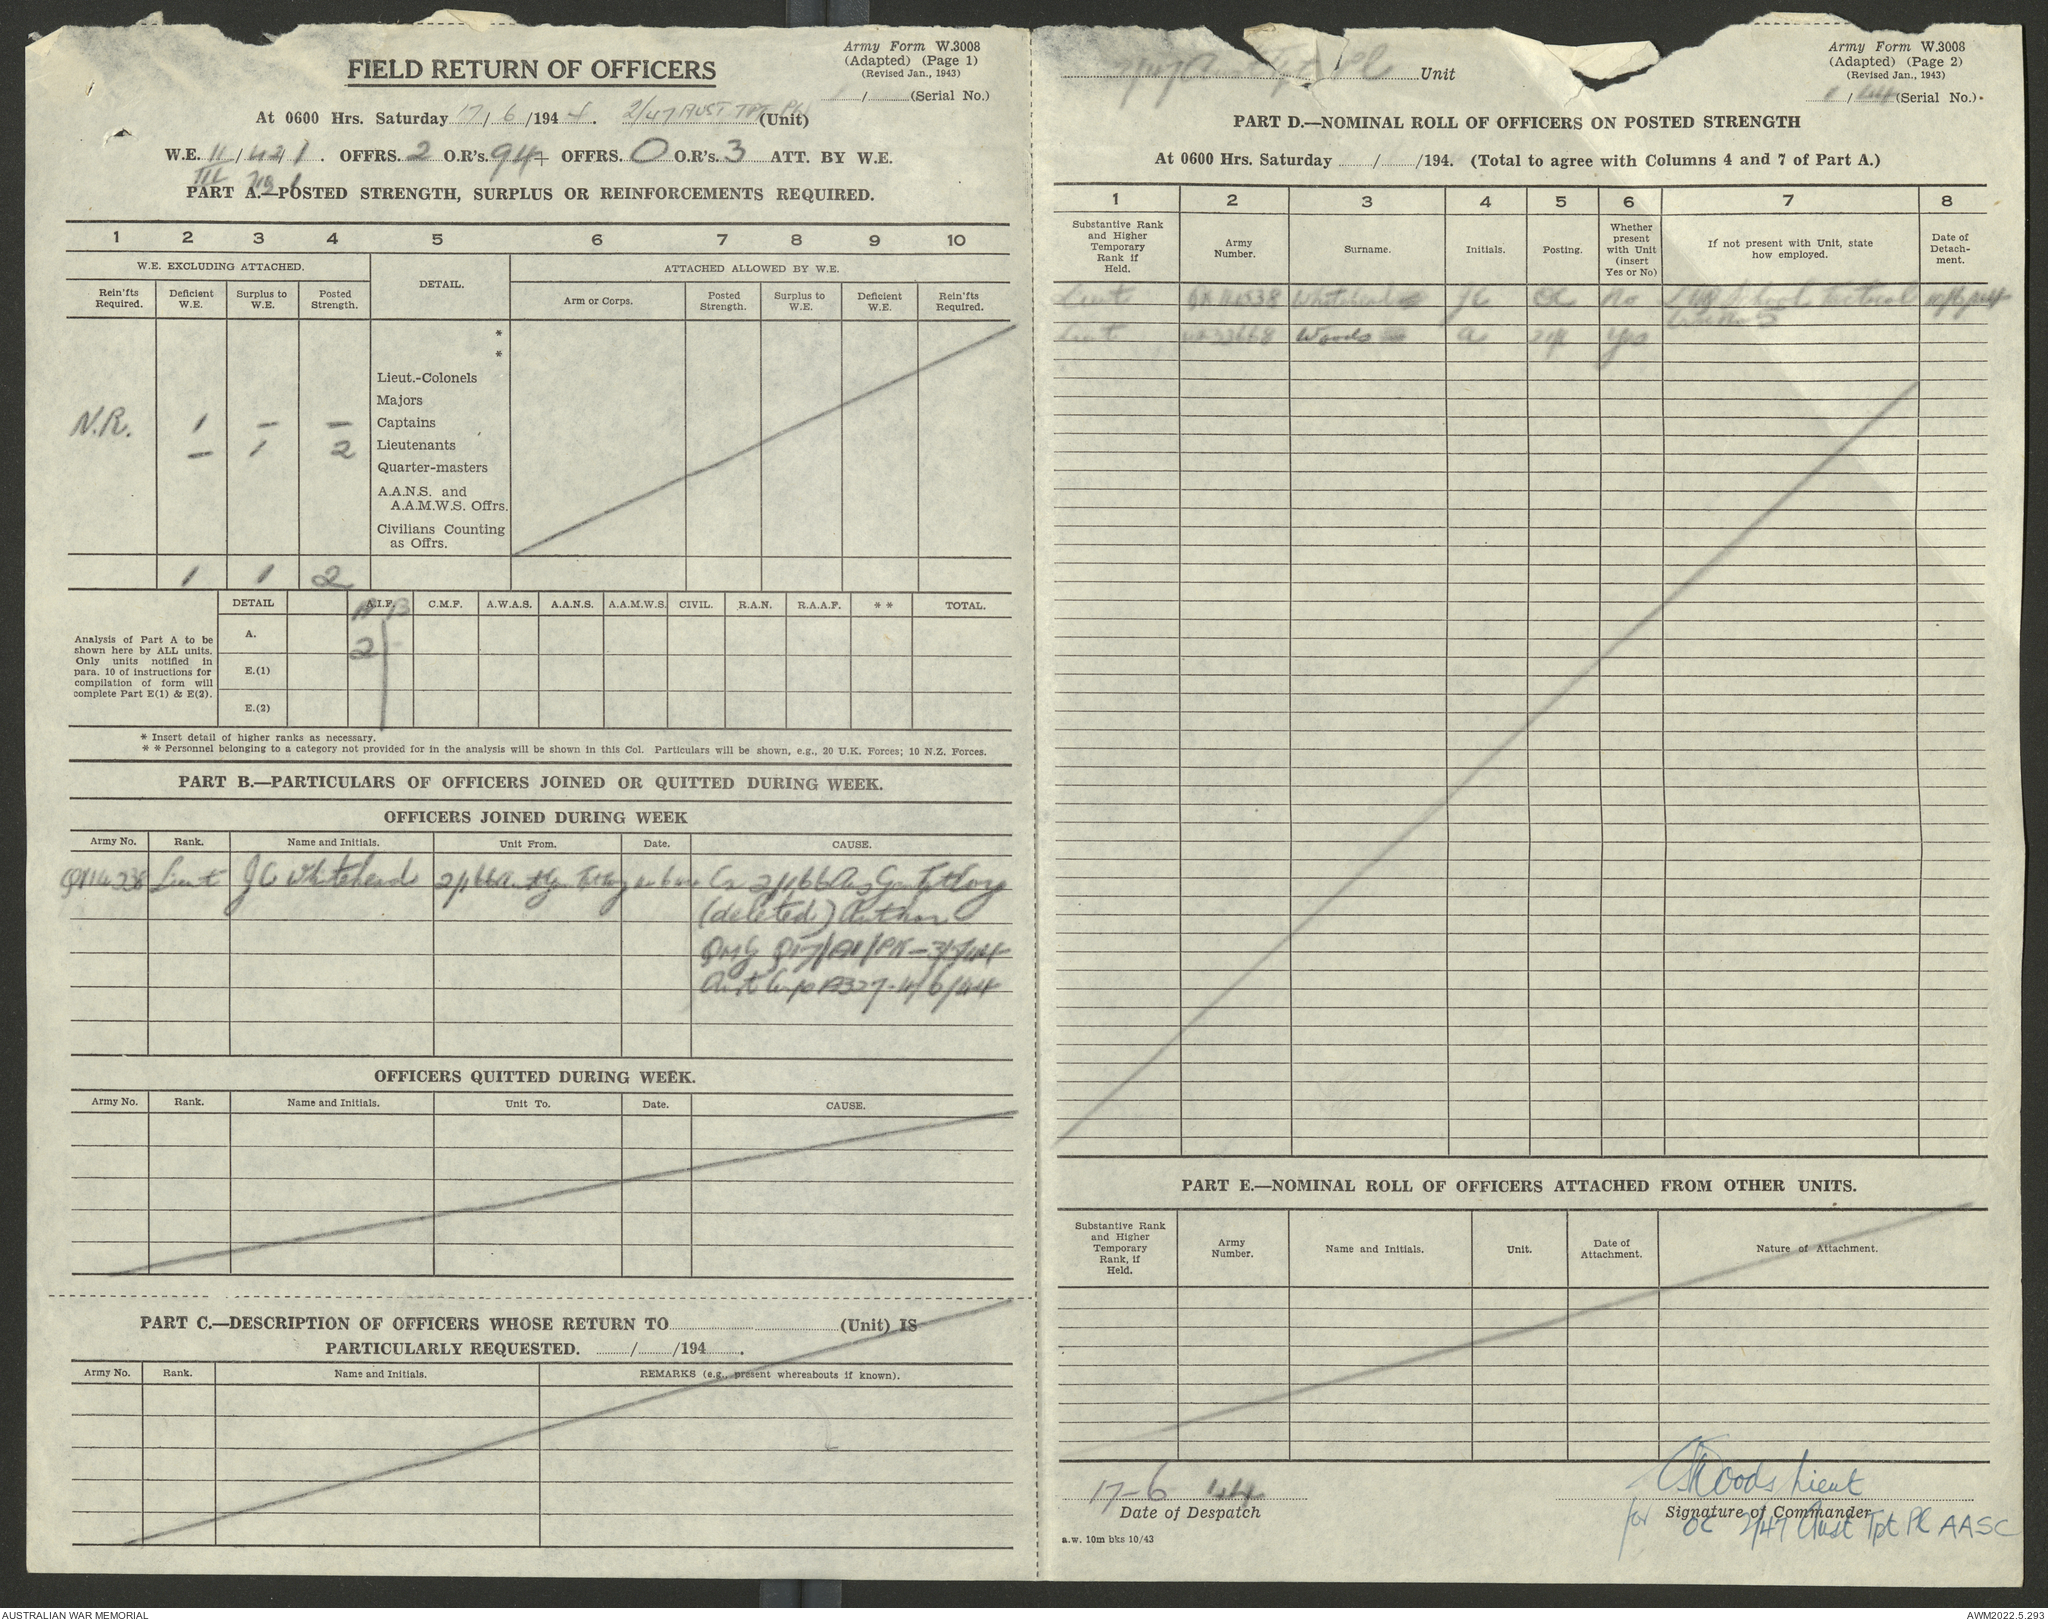 Army Form W.3008
(Adapted) (Page 1)
(Revised Jan., 1943)
FIELD RETURN OF OFFICERS
/ (Serial No.)
At 0600 Hrs. Saturday 17/6/1944. 2/47 AUST TPT PL (Unit)
W.E. II/421. OFFRS. 2 O.R's. 94 + OFFRS. 0 O.R's. 3 ATT. BY W.E.
III
PART A.—POSTED STRENGTH, SURPLUS OR REINFORCEMENTS REQUIRED.
1 2 3 4 5 6 7 8 9 10
W.E. EXCLUDING ATTACHED. DETAIL. ATTACHED ALLOWED BY W.E.
Rein'fts Required. Deficient W.E. Surplus to W.E. Posted Strength. Arm or Corps. Posted Strength. Surplus to W.E. Deficient W.E. Rein'fts Required.
*
*
Lieut.-Colonels
Majors
N.R. 1 – – Captains
– 1 2 Lieutenants
Quarter-masters
A.A.N.S. and
A.A.M.W.S. Offrs.
Civilians Counting
as Offrs.
1 1 2
DETAIL A.I.F. C.M.F. A.W.A.S. A.A.N.S. A.A.M.W.S. CIVIL. R.A.N. R.A.A.F. * * TOTAL.
A B
Analysis of Part A to be
shown here by ALL units.
Only units notified in
para. 10 of instructions for
compilation of form will
complete Part E(1) & E(2).
A. 2 -
E.(1)
E.(2)
* Insert detail of higher ranks as necessary.
* * Personnel belonging to a category not provided for in the analysis will be shown in this Col. Particulars will be shown, e.g., 20 U.K. Forces; 10 N.Z. Forces.
PART B.—PARTICULARS OF OFFICERS JOINED OR QUITTED DURING WEEK.
OFFICERS JOINED DURING WEEK
Army No. Rank. Name and Initials. Unit From. Date. CAUSE.
Lieut JC Whitehead 2/166 Aust Gen Tpt Coy Ex 2/166 Aus Gen Tpt Coy
(deleted) Author
QMG
Aust Corps 4/6/44
OFFICERS QUITTED DURING WEEK.
Army No. Rank. Name and Initials. Unit To. Date. CAUSE.
PART C.—DESCRIPTION OF OFFICERS WHOSE RETURN TO (Unit) IS
PARTICULARLY REQUESTED. / /194 .
Army No. Rank. Name and Initials. REMARKS (e.g., present whereabouts if known).
2/47 Aust Tpt Pl Unit
Army Form W.3008
(Adapted) (Page 2)
(Revised Jan., 1943)
/ 44 (Serial No.)
PART D.—NOMINAL ROLL OF OFFICERS ON POSTED STRENGTH
At 0600 Hrs. Saturday / /194. (Total to agree with Columns 4 and 7 of Part A.)
1 2 3 4 5 6 7 8
Substantive Rank and Higher Temporary Rank if Held. Army Number. Surname. Initials. Posting. Whether present with Unit (insert Yes or No) If not present with Unit, state how employed. Date of Detach- ment.
Lieut Whitehead JC OC No School Tactical
Lieut Woods a Yes
PART E.—NOMINAL ROLL OF OFFICERS ATTACHED FROM OTHER UNITS.
Substantive Rank and Higher Temporary Rank, if Held. Army Number. Name and Initials. Unit. Date of Attachment. Nature of Attachment.
17-6 44
Date of Despatch
Woods Lieut
Signature of Commander
for OC 2/47 Aust Tpt Pl AASC
a.w. 10m bks 10/43
AUSTRALIAN WAR MEMORIAL
AWM2022.5.293